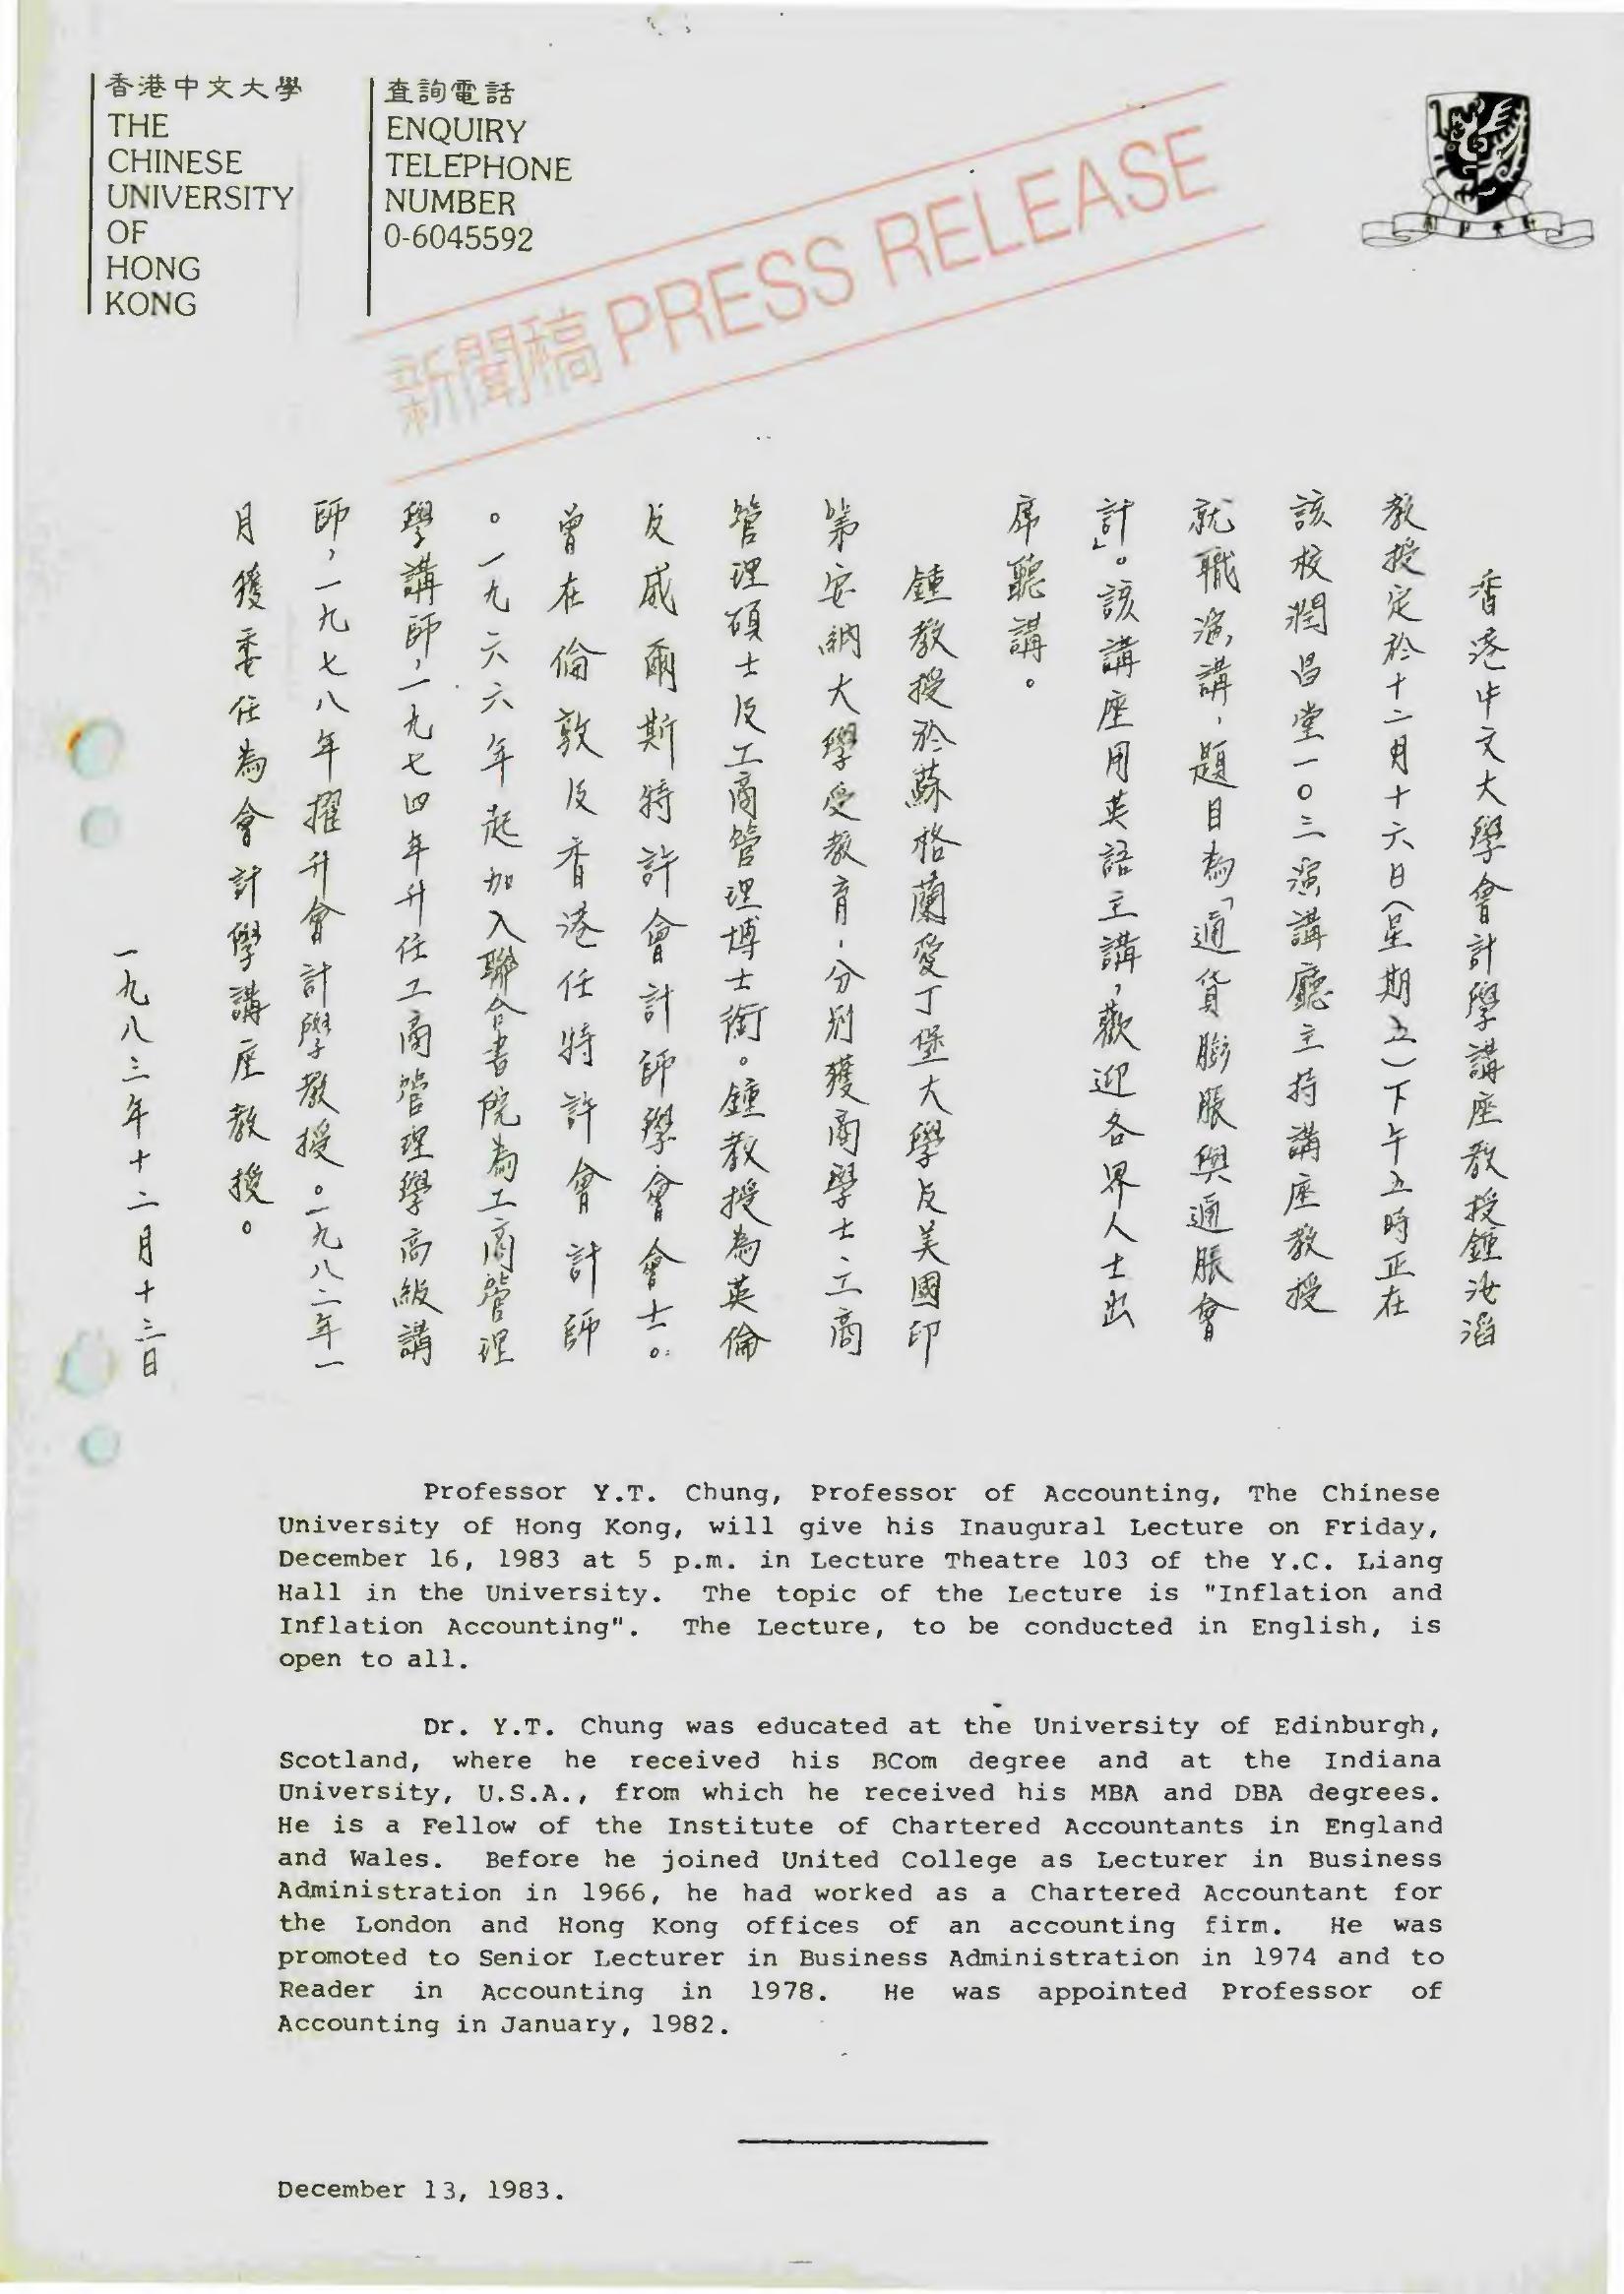 香港中文大學
THE
CHINESE
UNIVERSITY
OF
HONG
KONG
查詢電話
ENQUIRY
TELEPHONE
NUMBER
0-6045592
新聞稿 PRESS RELEASE
香港中文大學會計學講座教授鍾汝滔
教授定於十二月十六日(星期五)下午五時正在
該校潤昌堂一〇三演講廳主持講座教授
就職演講,題目為「通貨膨脹與通脹會
計」。該講座用英語主講,歡迎各界人士出
席聽講。
鍾教授於蘇格蘭愛丁堡大學及美國印
第安納大學受教育,分別獲商學士、工商
管理碩士及工商管理博士銜。鍾教授為英倫
及威爾斯特許會計師學會會士。
曾在倫敦及香港任特許會計師
。一九六六年起加入聯合書院為工商管理
學講師,一九七四年升任工商管理學高級講
師,一九七八年擢升會計學教授。一九八二年一
月獲委任為會計學講座教授。
一九八三年十二月十三日
Professor Y.T. Chung, Professor of Accounting, The Chinese
University of Hong Kong, will give his Inaugural Lecture on Friday,
December 16, 1983 at 5 p.m. in Lecture Theatre 103 of the Y.C. Liang
Hall in the University. The topic of the Lecture is "Inflation and
Inflation Accounting". The Lecture, to be conducted in English, is
open to all.
Dr. Y.T. Chung was educated at the University of Edinburgh,
Scotland, where he received his BCom degree and at the Indiana
University, U.S.A., from which he received his MBA and DBA degrees.
He is a Fellow of the Institute of Chartered Accountants in England
and Wales. Before he joined United College as Lecturer in Business
Administration in 1966, he had worked as a Chartered Accountant for
the London and Hong Kong offices of an accounting firm. He was
promoted to Senior Lecturer in Business Administration in 1974 and to
Reader in Accounting in 1978. He was appointed Professor of
Accounting in January, 1982.
December 13, 1983.